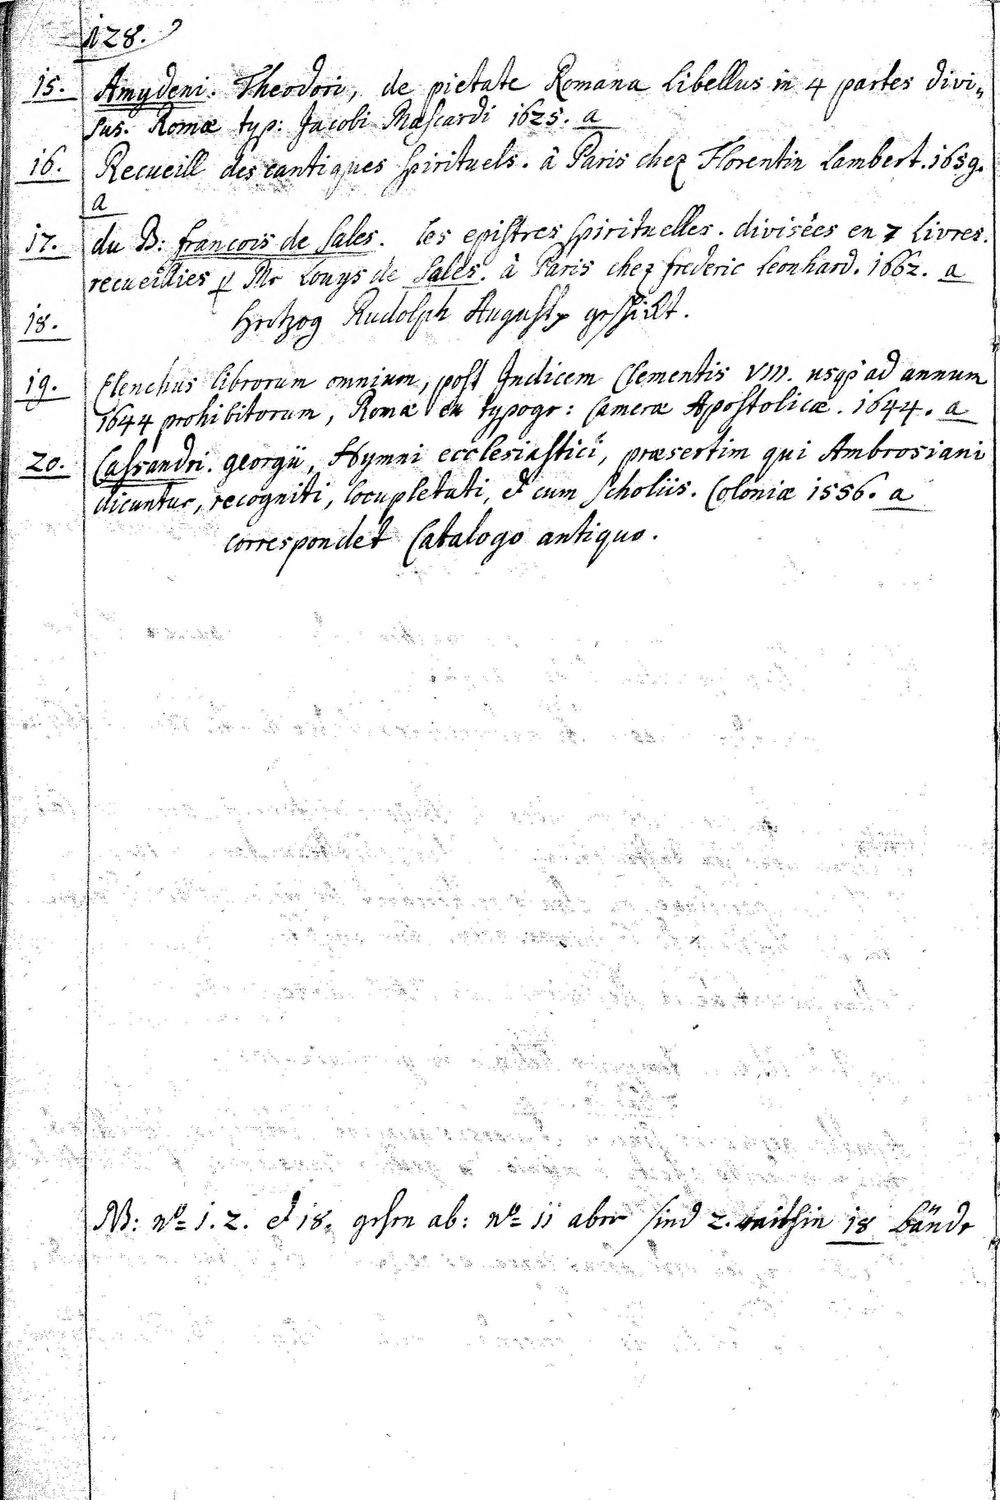 128.
15. Amydeni. Theodori, de pietate Romana libellus in 4 partes divi=
sus. Romæ typ: Jacobi Mascardi 1625. a
16. Recueill des cantiques spirituels. â Paris chez Florentin Lambert. 1659.
a
17. du B: francois de Sales. les epistres spirituelles. divisées en 7 livres.
recueillies p Mr Louys de Sales. â Paris chez frederic Leonhard. 1662. a
18. Hertzog Rudolph August geschickt.
19. Elenchus librorum omnium, post Indicem Clementis VIII. usq; ad annum
1644 prohibitorum, Romæ ex typogr: Cameræ Apostolicæ. 1644. a
20. Cassandri. georgii, Hymni ecclesiastici, præsertim qui Ambrosiani
dicuntur, recogniti, locupletati, et cum Scholiis. Coloniæ 1556. a
correspondet Catalogo antiquo.
NB: no 1. 2. et 18. gehen ab: no 11 aber sind 2. mithin 18 bände